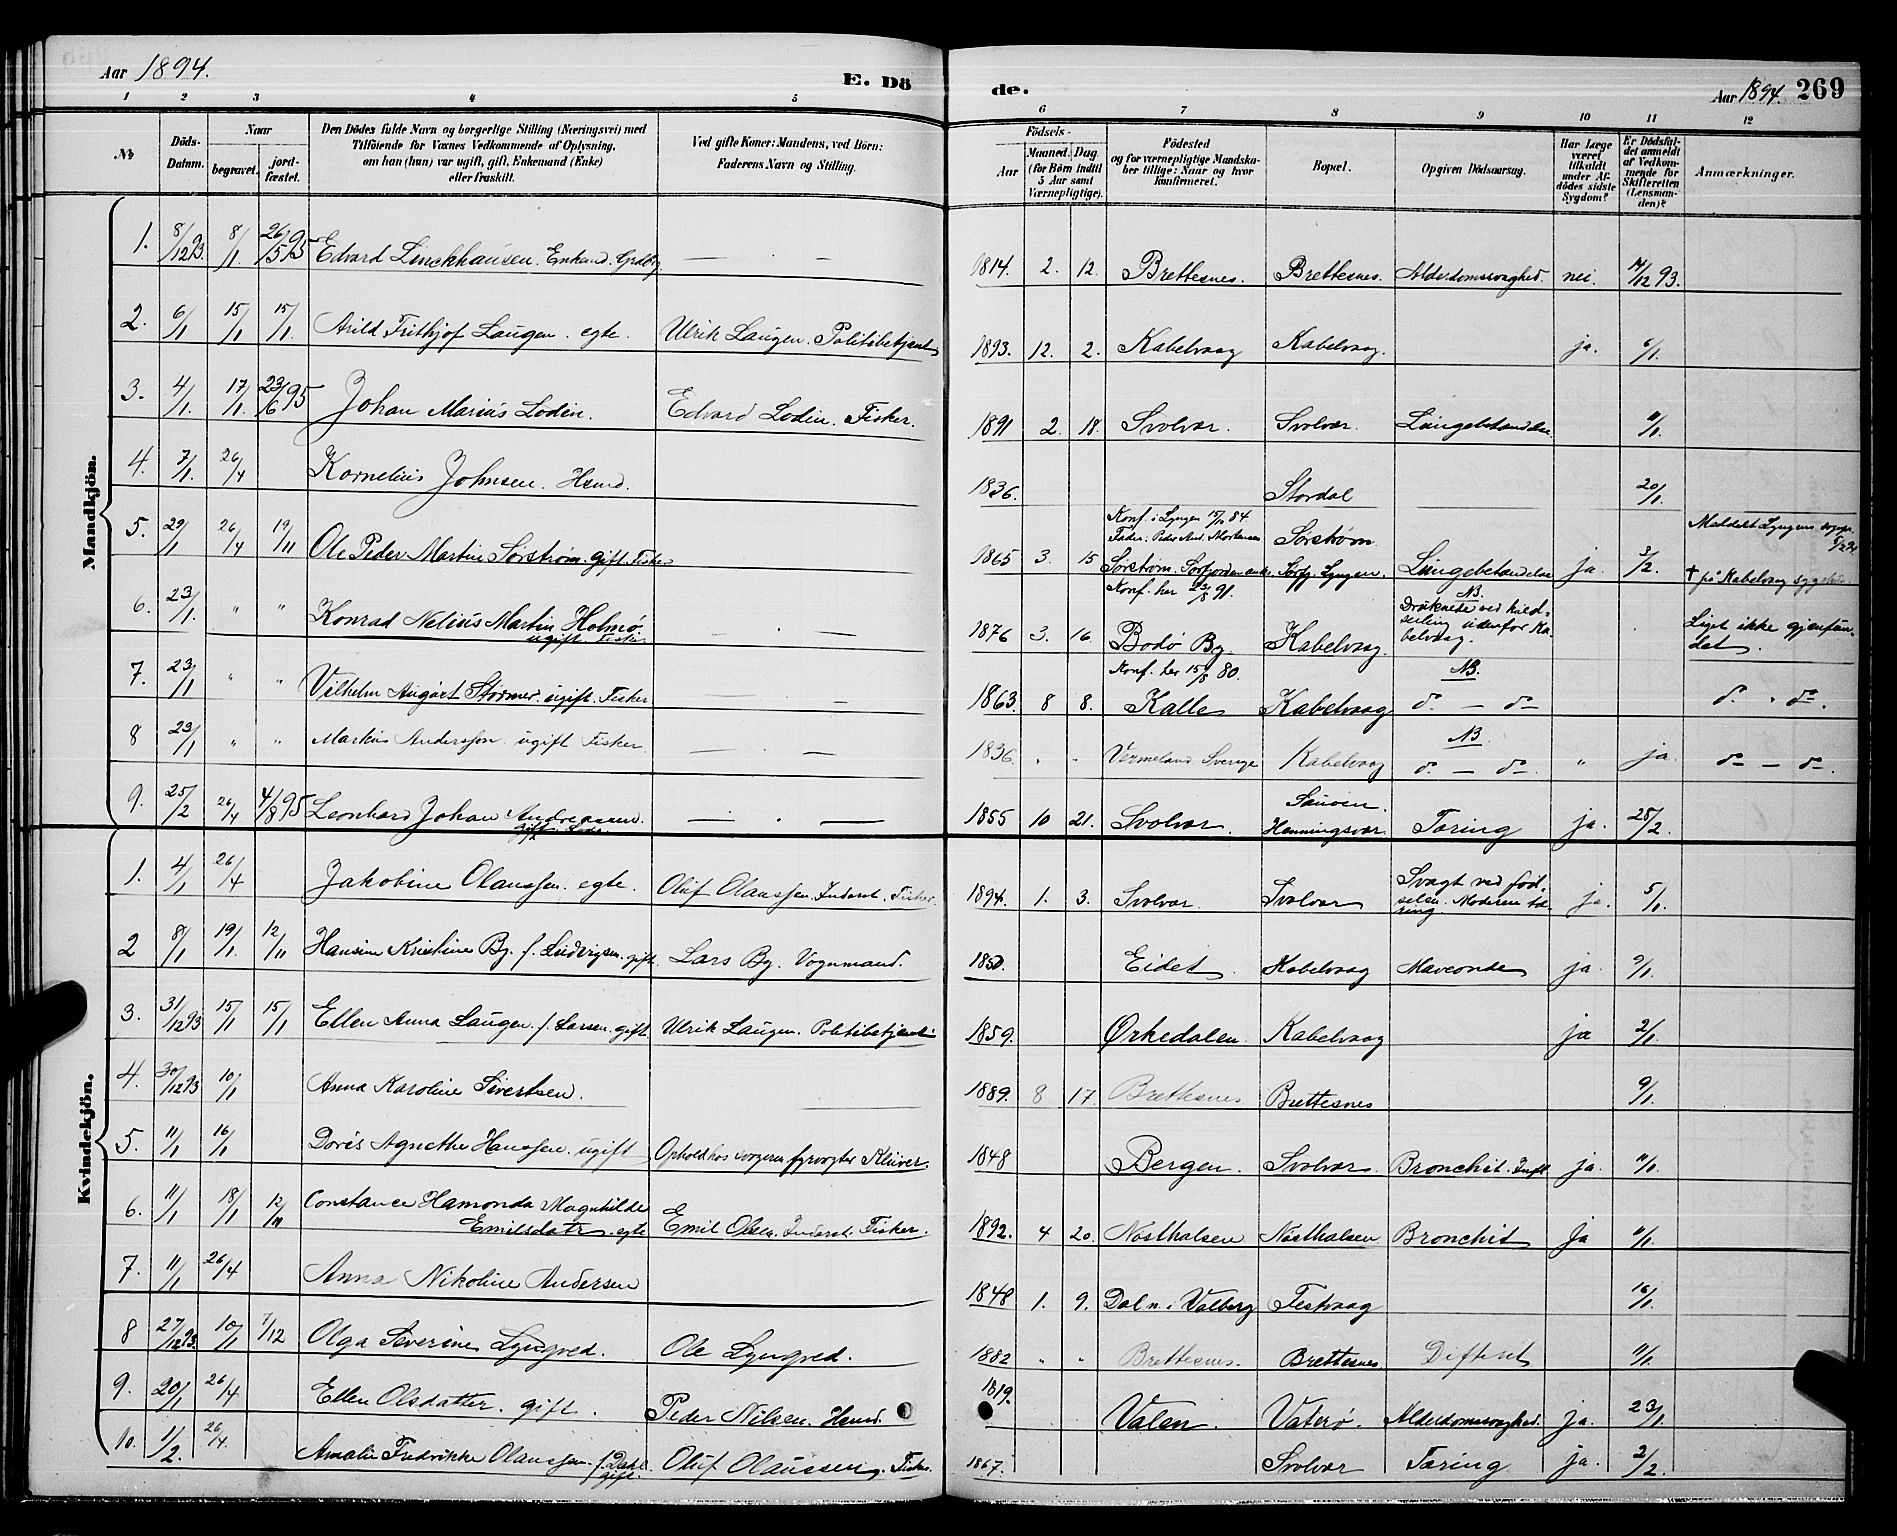 Aar 1894. E. Dö de. Aar 1894. 269
1 2 3 4 5 6 7 8 9 10 11 12
№ Döds-Datum. Naar begravet. jordfæstet. Den Dödes fulde Navn og borgerlige Stilling (Næringsvei) med Tilföiende for Voxnes Vedkommende af Oplysning, om han (hun) var ugift, gift, Enkemand (Enke) eller fraskilt. Ved gifte Koner: Mandens, ved Börn: Faderens Navn og Stilling. Födsels- Aar Maaned. Dag. (for Börn indtil 5 Aar samt Værnepligtige). Födested og for værnepligtige Mandskaber tillige: Naar og hvor konfirmeret. Bopæl. Opgiven Dödsaarsag. Har Læge været tilkaldt under Afdödes sidste Sygdom? Er Dödsfaldet anmeldt af Vedkommende for Skifteretten (Lensmanden)? Anmærkninger.
Mandkjön.
1. 8/12 93 8/1 26/5 95 Edvard Linckhausen. Enkemd. — . — 1814. 2. 12. Brettesnes. Brettesnes. Alderdomssvaghed. nei. 12 93.
2. 6/1 15/1 15/1 Arild Frithjof Laugen. egte. Ulrik Laugen. Politibetjent 1893. 12. 2. Kabelvaag Kabelvaag. ja. 6/1.
3. 4/1 17/1 23/6 95 Johan Marius Lodin. Edvard Lodin. Fisker. 1891 2. 18. Svolvær. Svolvær. Lungebetændelse 11/1.
4. 7/1. 26/4 Kornelius Johnsen. Hsmd. 1836. Stordal 20/1.
5. 29/1 26/4 19/11 Ole Peder Martin Sørstrøm. gift. Fisker 1865 3. 15 Konf. i Lyngen 15/ 84 Fader: Peder And. Mortensen Sørstrøm. Sørfjorden Sørstrøm Sørfj. Lyngen. Lungebetændelse ja. 3/2. Meldt Lyngens sogepr. † på Kabelvaag sygehus
6. 23/1. " " Konrad Nelius Martin Holmø. ugift Fisker — . — 1876 3. 16 Konf. her 23/8 91. Bodø By. Kabelvaag. NB. Druknede ved kuldseiling udenfor Kabelvaag. Liget ikke gjenfundet.
7. 23/1 " " Vilhelm August Størmer. ugift. Fisker — . — 1863. 8 8. Konf. her 15/8 80. Kalle Kabelvaag NB. d. — do d. " do.
8 23/1 " " Markus Anderssen. ugift Fisker — — 1836. " " Vermeland. Sverige Kabelvaag NB. d. — do " ja. do — do.
9. 25/2 26/4 4/8 95 Leonhard Johan Andreasen. gift — . — 1855 10 21. Svolvær. Sauøen. Henningsvær Tæring ja. 28/2.
Kvindekjön.
1. 4/1 26/4 Jakobine Olaussen. egte. Oluf Olaussen. Inderst. Fisker. 1894. 1. 3. Svolvær. Svolvær Svagt ved fødselen. Moderen tæring. ja. 5/1.
2 8/1 19/1. 12/11 Hansine Kristine By. f. Ludvigsen. gift. Lars By. Vognmand. 1850. Eidet. Kabelvaag Maveonde ja. 9/1.
3. 31/12 93 15/1 15/1 Ellen Anna Laugen. f. Larsen. gift Ulrik Laugen. Politibetjent 1859. Ørkedalen. Kabelvaag ja 2/1.
4. 30/12 93 10/1 Anna Karoline Sivertsen. 1889. 8 17. Brettesnes. Brettesnes 9/1.
5. 11/1 16/1 Doris Agnethe Hanssen. ugift Ophold hos svogeren fyrvogter Klüver. 1848 Bergen. Svolvær Bronchit. Infl. ja. 11/1.
6. 11/1 18/1 12/11 Constance Hamonda Magnhilde Emilsdatr. egte Emil Olsen. Inderst. Fisker. 1892. 4 20. Næsthalsen Næsthalsen Bronchit Ja 11/1.
7. 11/1 26/4 Anna Nikoline Andersen 1848 1. 9. Dal n. i Valberg Festvaag 16/1.
8 27/12 93. 10/1 7/12 Olga Severine Lyngved. Ole Lyngved. 1882 " " Brettesnes. Brettesnes Difterit 11/1.
9. 20/1 26/4 Ellen Olsdatter. gift. Peder Nilsen. Hsmd. 1819. Valen. Vaterø. Alderdomssvaghed. ja. 23/1.
10. 1/2. 26/4. Amalie Fredrikke Olaussen. f. Dahl gift. Oluf Olaussen. Fisker. 1867. Svolvær Tæring ja. 2/2.